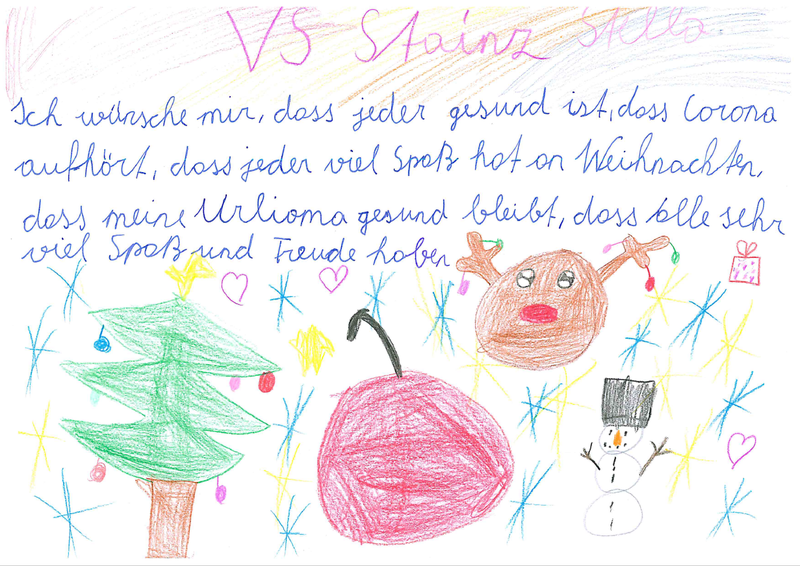 VS Stainz Stella
Ich wünsche mir, dass jeder gesund ist, dass Corona
aufhört, dass jeder viel Spaß hat an Weihnachten,
dass meine Urlioma gesund bleibt, dass alle sehr
viel Spaß und Freude haben